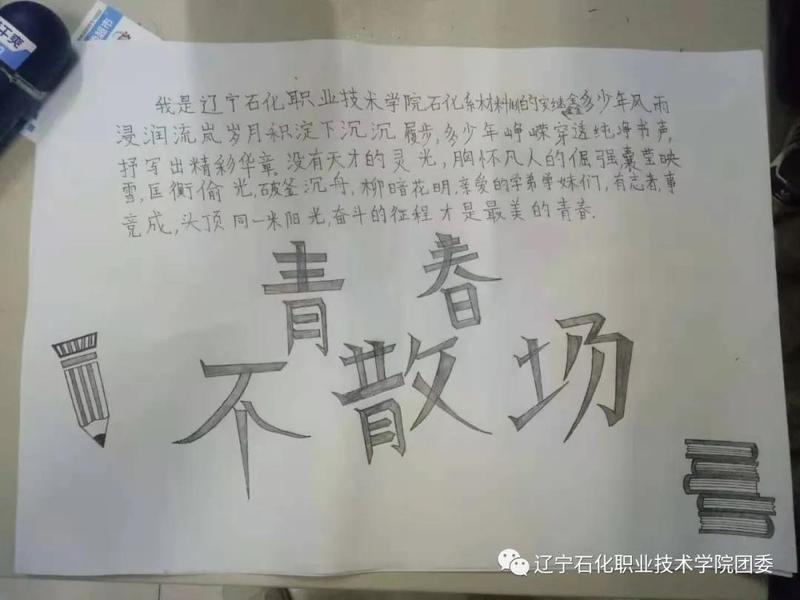 我是辽宁石化职业技术学院石化系材料 的 鑫多少年风雨
浸润流岚岁月积淀下沉沉履步,多少年峥嵘穿透纯净书声,
抒写出精彩华章.没有天才的灵光,胸怀凡人的倔强囊莹映
雪,匡衡偷光,破釜沉舟,柳暗花明.亲爱的学弟学妹们,有志者,事
竟成,头顶同一米阳光,奋斗的征程才是最美的青春.
青春
不散场
辽宁石化职业技术学院团委